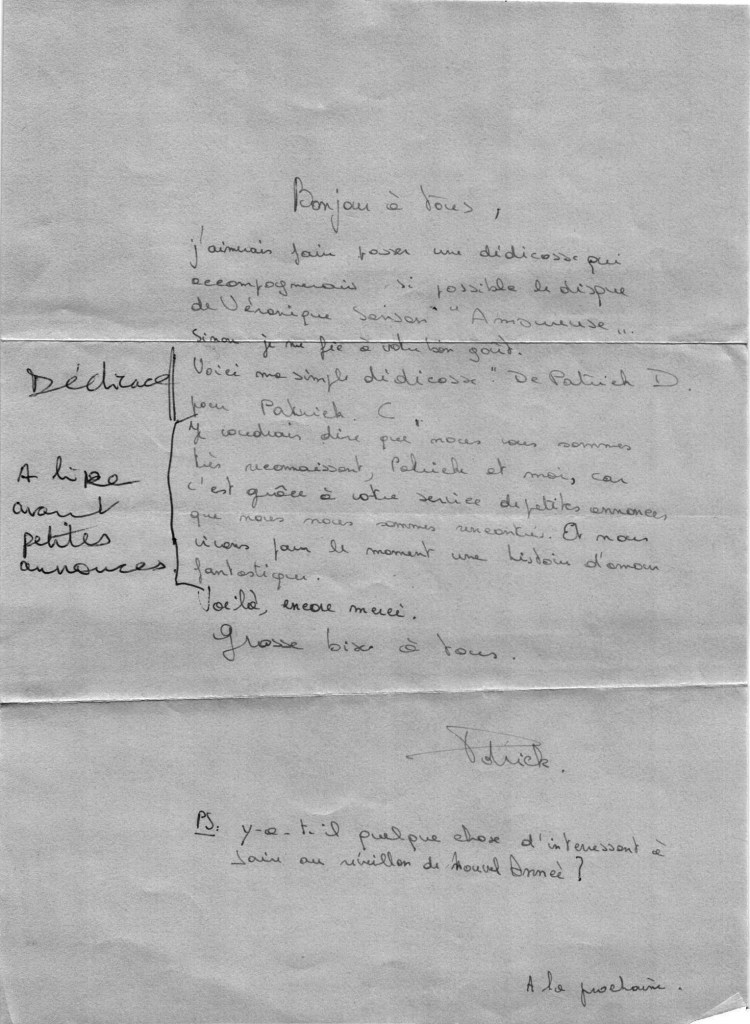 Bonjour à tous,
j'aimerais faire passer une dédicasse qui
accompagnerais si possible le disque
de Véronique Sanson "Amoureuse"...
Sinon je me fie à votre bon goût.
Dédicace
Voici ma simple dédicasse "De Patrick D.
pour Patrick C"
A lire
avant
petites
annonces.
Je voudrais dire que nous vous sommes
très reconnaissant, Patrick et moi, car
c'est grâce à votre service de petites annonces,
que nous nous sommes rencontrés. Et nous
vivons pour le moment une histoire d'amour
fantastique.
Voilà, encore merci.
Grosse bise à tous.
Patrick.
PS: y-a-t-il quelque chose d'interressant à
faire au réveillon de Nouvel Année ?
A la prochaine.